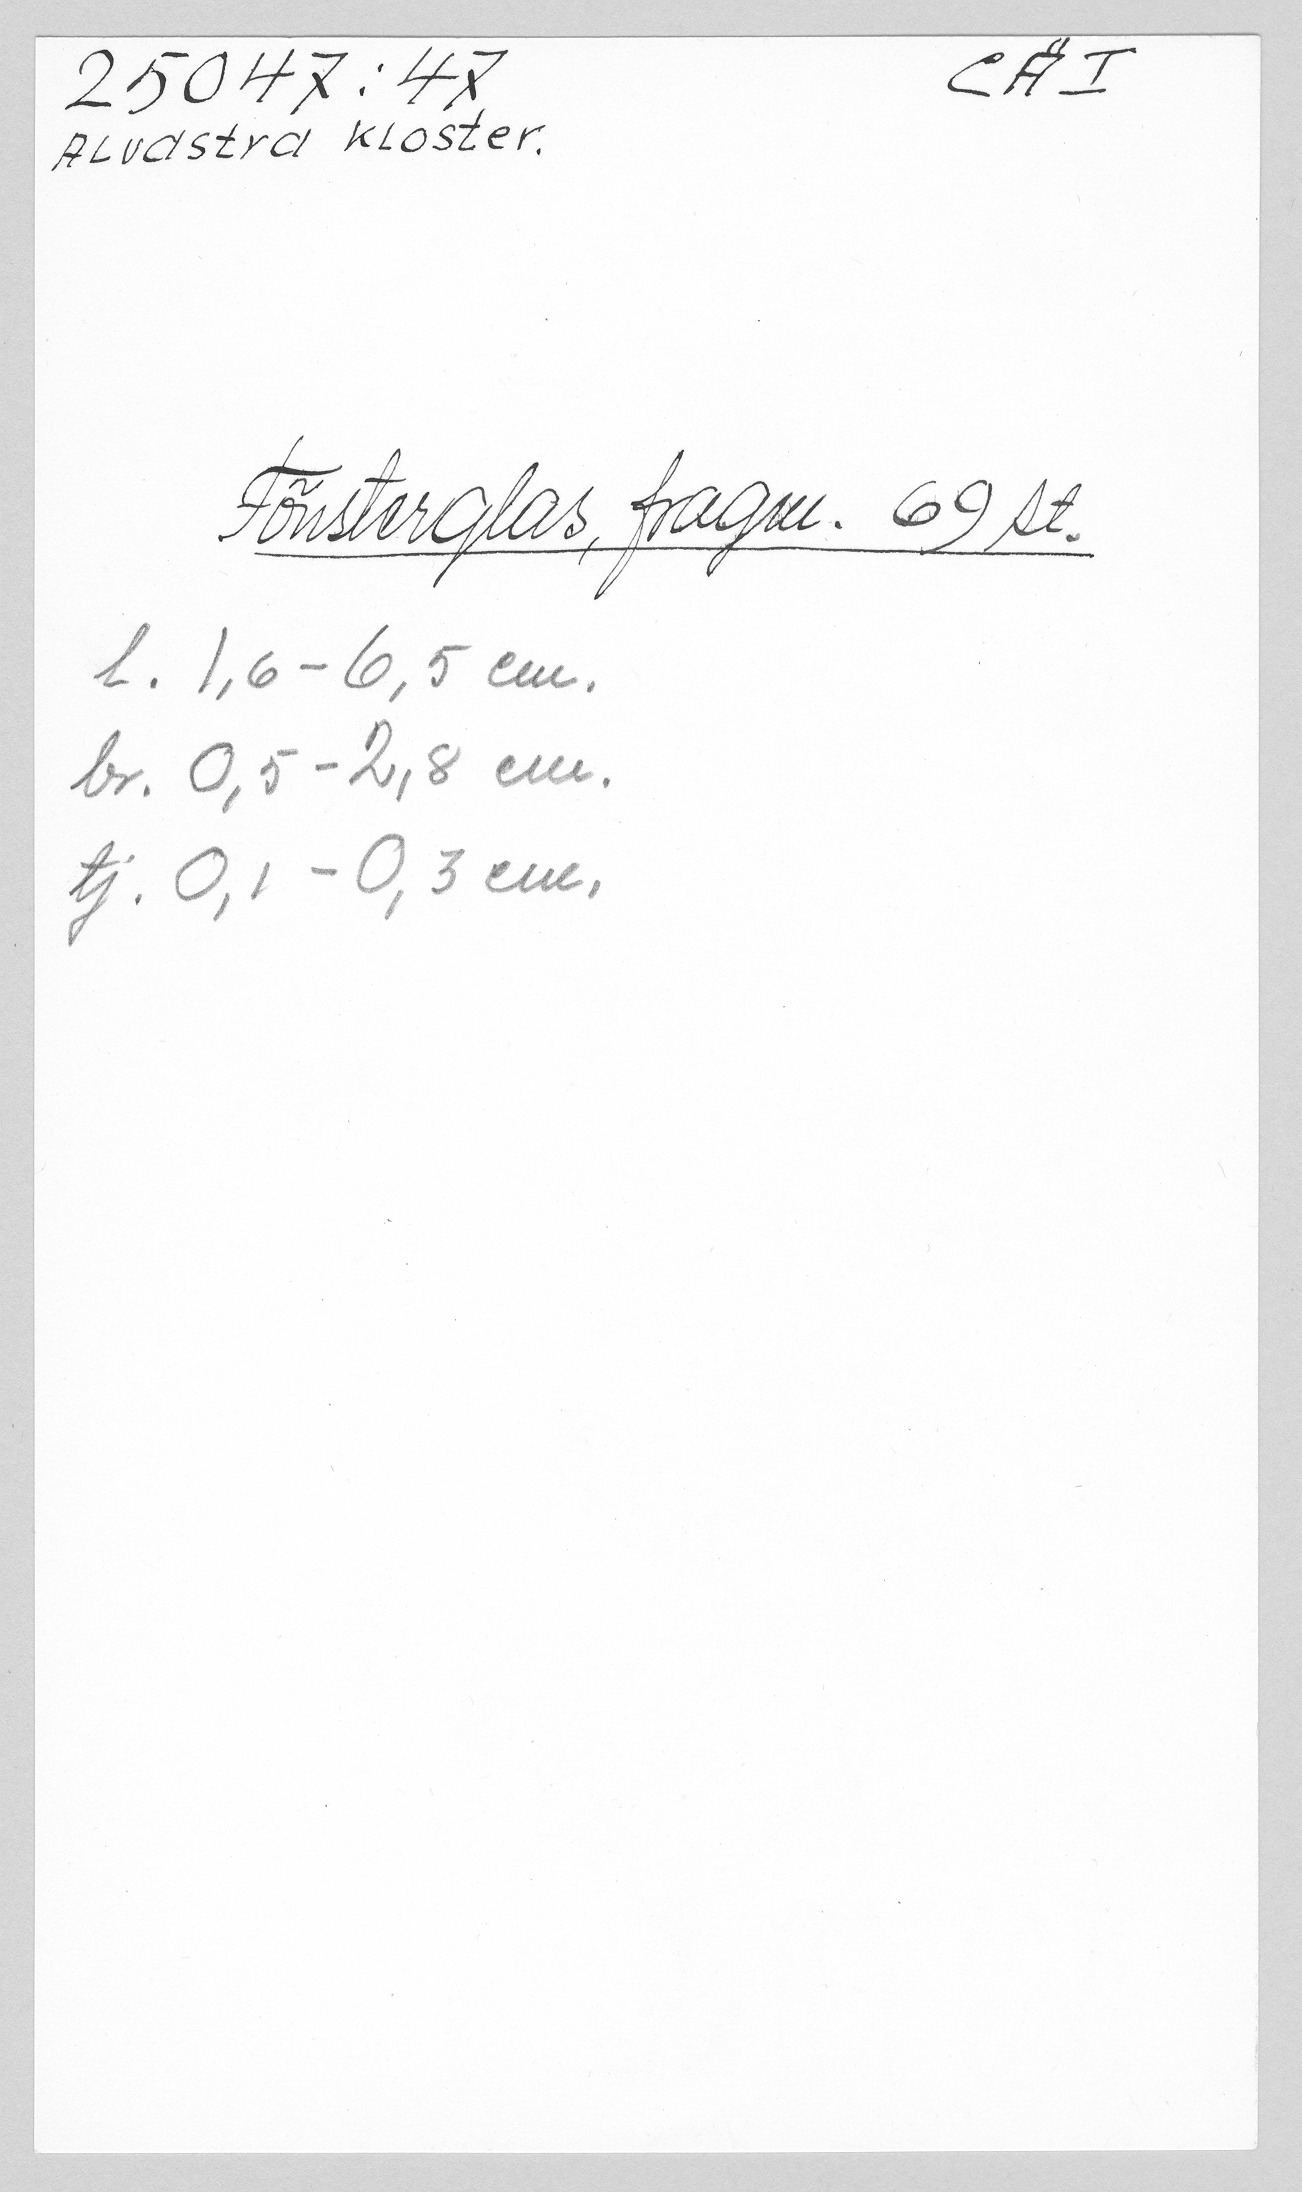 25047:47
CÄI
Alvastra kloster.
Fönsterglas, fragm. 69 st.
l. 1,6-6,5 cm.
br. 0,5-2,8 cm.
tj. 0,1-0,3 cm.